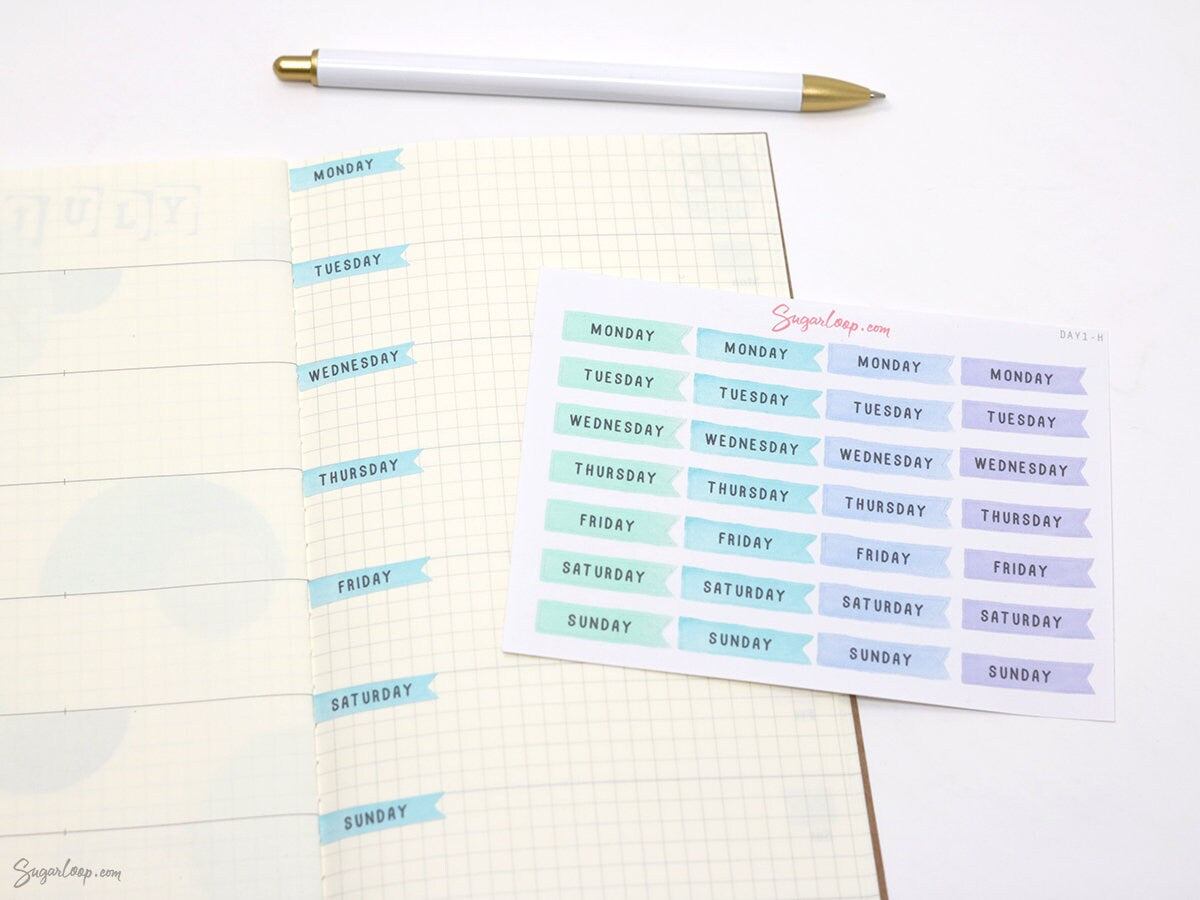 JULY
MONDAY
TUESDAY
WEDNESDAY
THURSDAY
FRIDAY
SATURDAY
SUNDAY
Sugarloop.com
DAY1-H
MONDAY MONDAY MONDAY MONDAY
TUESDAY TUESDAY TUESDAY TUESDAY
WEDNESDAY WEDNESDAY WEDNESDAY WEDNESDAY
THURSDAY THURSDAY THURSDAY THURSDAY
FRIDAY FRIDAY FRIDAY FRIDAY
SATURDAY SATURDAY SATURDAY SATURDAY
SUNDAY SUNDAY SUNDAY SUNDAY
Sugarloop.com